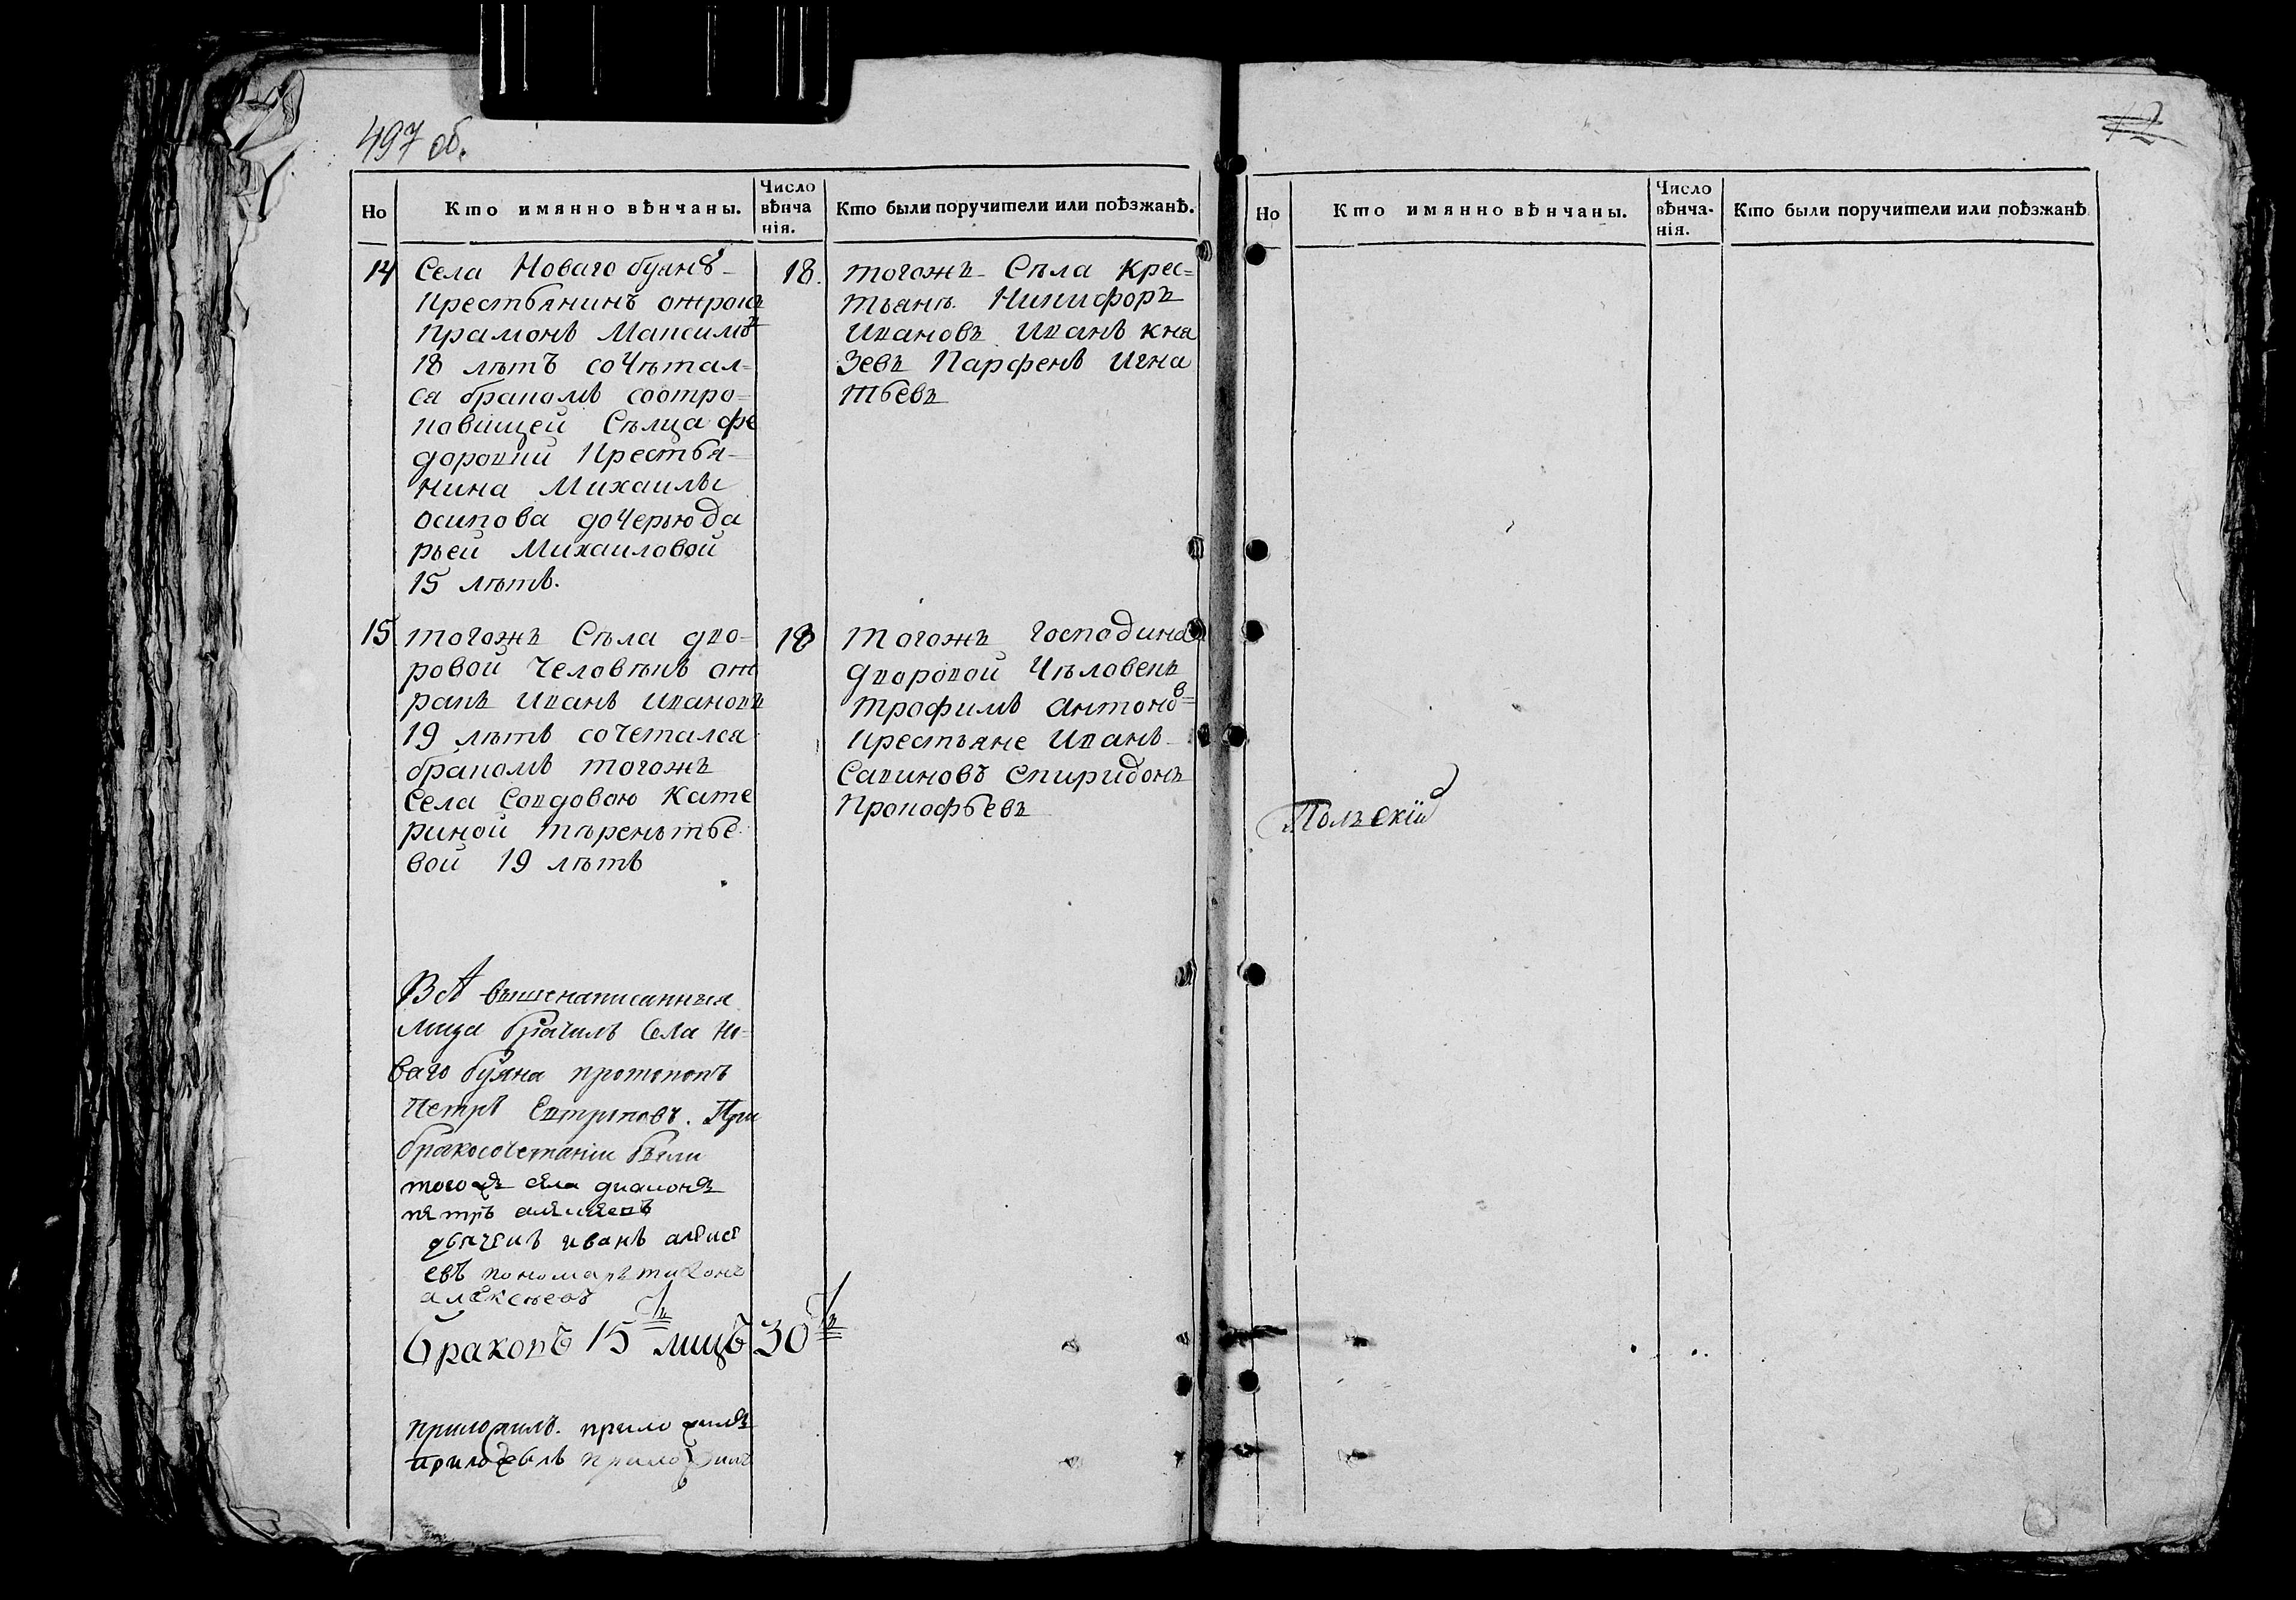 497 об.
Но
Кто имянно вѣнчаны.
Число
вѣнча
нія.
Кто были поручители или поѣзжанѣ.
14
Села Новаго буянѣ
крестьянинъ отрокъ
Крамонъ Максимъ
18 лѣтъ сочѣтал=
ся бракомъ соотро=
ковицей Сѣлца фе
доровки крестья-
нина Михаилы
осипова дочерью да
рьей Михаиловой
15 лѣтъ.
18.
тогожъ Сѣла крес=
тьянѣ Никифоръ
Ивановъ Иванъ кня
зевъ Парфенъ Игна
тьевъ
15
тогожъ Сѣла дво-
ровой человѣкъ от
рокъ Иванъ Ивановъ
19 лѣтъ сочетался
бракомъ тогожъ
села Свдовою кате
риной тѣреньтье
вой 19 лѣтъ
18
тогожъ господина
дворовой чѣловекъ
трофимъ антоновъ
крестьяне Иванъ
Савиновъ спиридонъ
Прокофьевъ
Всѣ вышенаписанныя
лица брачилъ Села но-
ваго буяна протопопъ
Петръ Евтроповъ. При
бракосочетаніи были
тогожъ села диаконъ
петръ алексеевъ
дьячекъ иванъ алексе
евъ пономарь тихонъ
алексѣевъ
браковъ 15ть лицъ 30ть
приложилъ. приложилъ
приложылъ приложилъ
12
Но
Кто имянно вѣнчаны.
Число
вѣнча-
нія.
Кто были поручители или поѣзжанѣ
Польскій